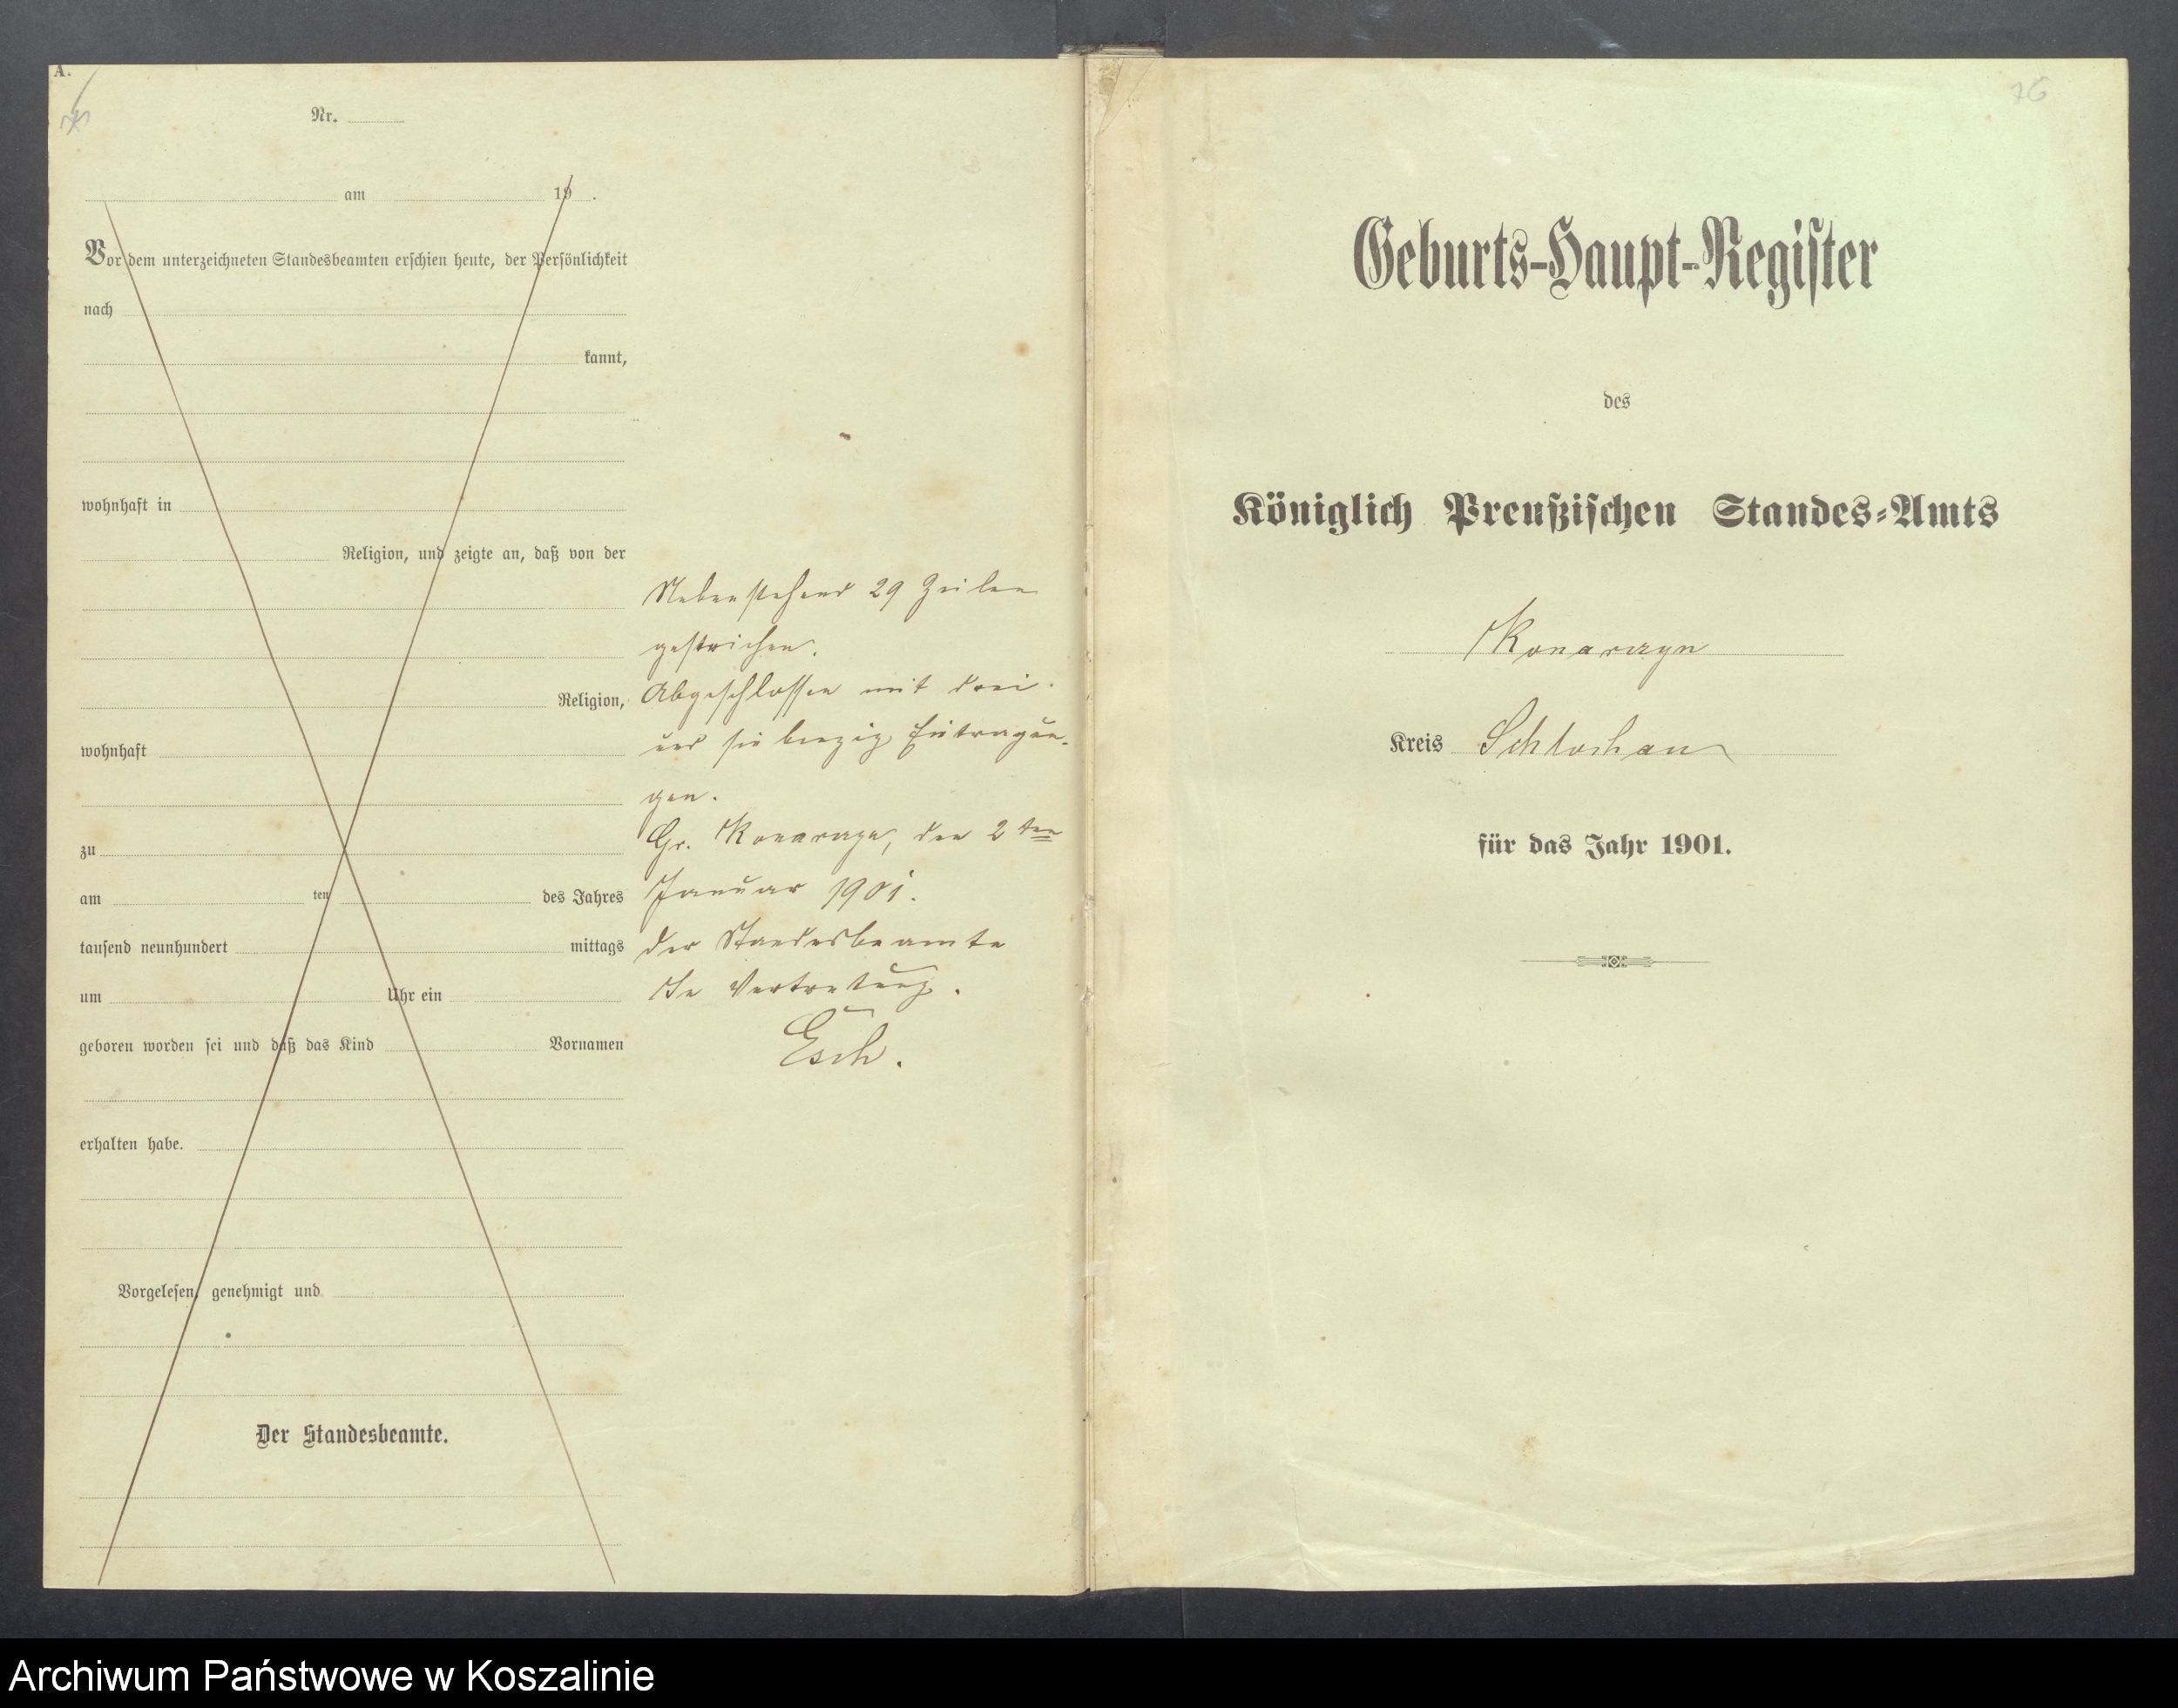 A.
Nr.
am 19 .
Vor dem unterzeichneten Standesbeamten erschien heute, der Persönlichkeit
nach
kannt,
wohnhaft in
Religion, und zeigte an, daß von der
Religion,
wohnhaft
zu
am ten des Jahres
tausend neunhundert mittags
um Uhr ein
geboren worden sei und daß das Kind Vornamen
erhalten habe.
Vorgelesen, genehmigt und
Der Standesbeamte.
Nebenstehend 29 Zeilen
gestrichen.
Abgeschlossen mit drei
und siebenzig Eintragun-
gen.
Gr. Konarzyn, den 2ten
Januar 1901.
Der Standesbeamte
In Vertretung.
Esch.
76
Geburts-Haupt-Register
des
Königlich Preußischen Standes-Amts
Konarzyn
Kreis Schlochau
für das Jahr 1901.
Archiwum Państwowe w Koszalinie